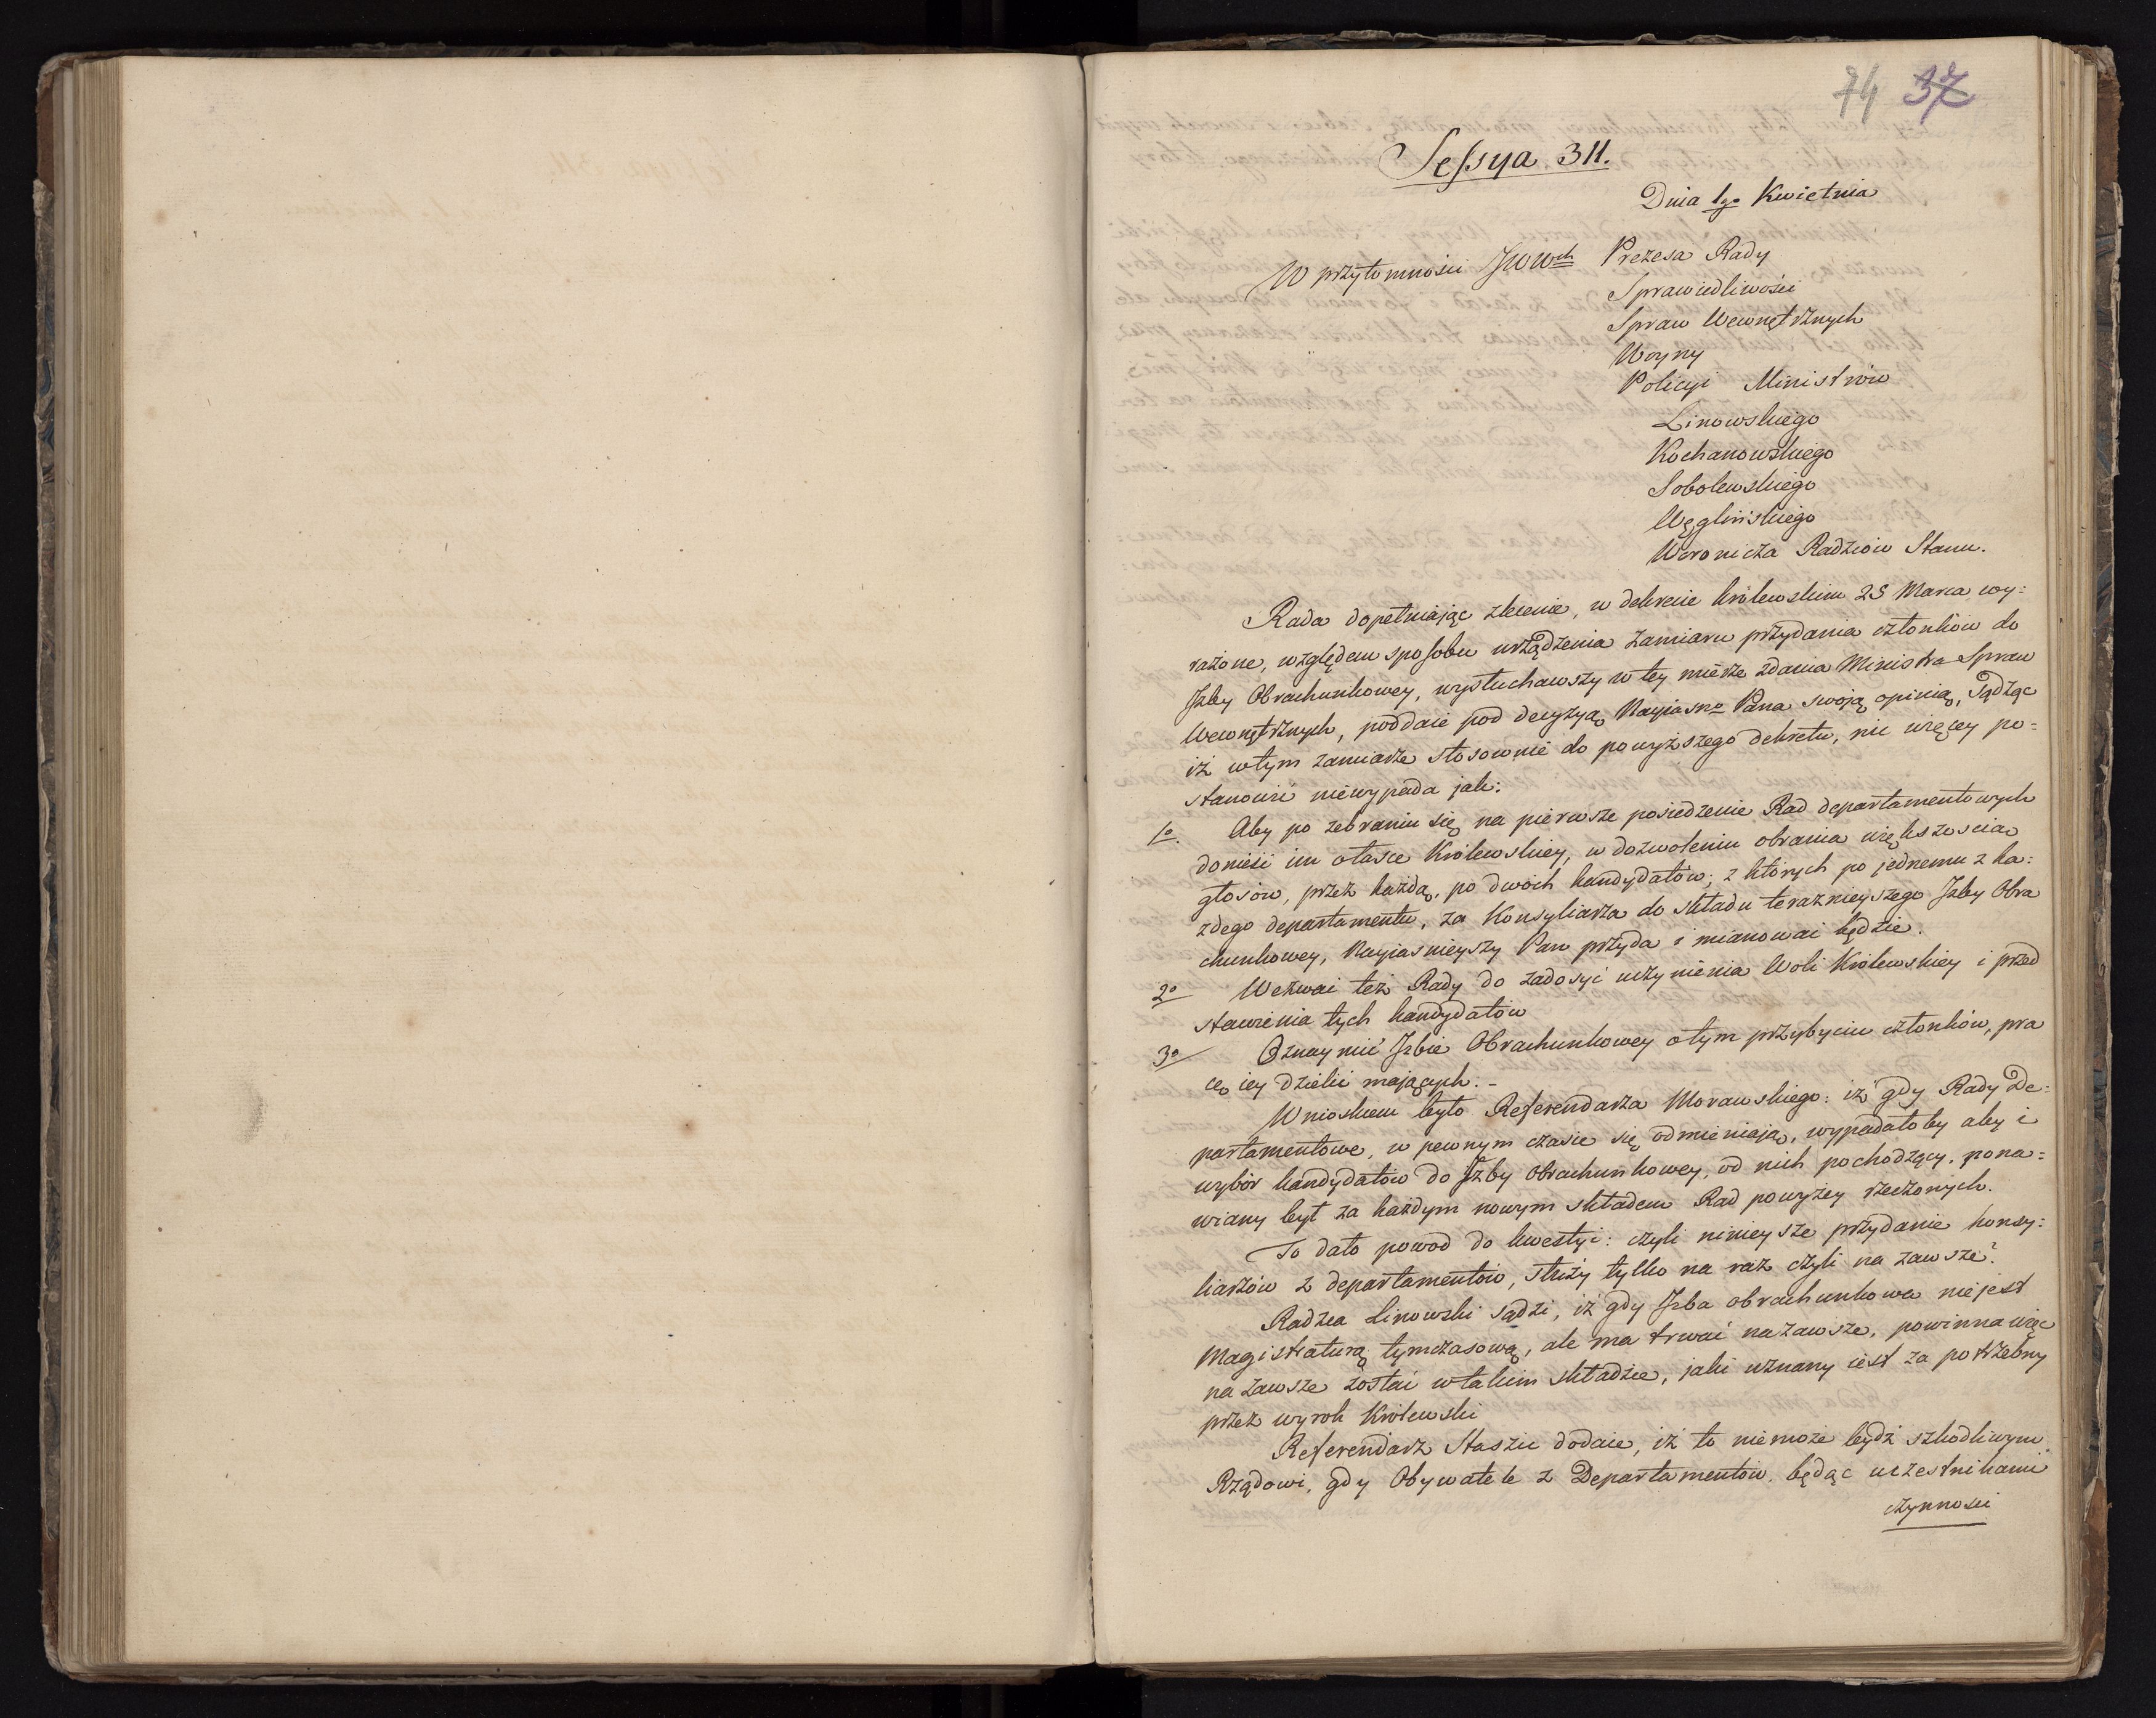 74 37
Sessya 311.
Dnia 1go Kwietnia
W przytomności JWWch Prezesa Rady
Sprawiedliwości
Spraw Wewnętrznych
Woyny
Policyi Ministrów
Linowskiego
Kochanowskiego
Sobolewskiego
Węglińskiego
Woronicza Radzców Stanu.
Rada dopełniając zlecenie, w dekrecie królewskim 23 Marca wy:
rażone, względem sposobu urządzenia zamiaru przydania członków do
Jzby Obrachunkowey, wysłuchawszy w tey mierze zdania Ministra Spraw
Wewnętrznych, poddaie pod decyzyą Nayiasno Pana swoją opinią, Sądząc
iż wtym zamiarze stosownie do powyższego dekretu, nic więcey po=
stanowić niewypada jak:
1o. Aby po zebraniu się na pierwsze posiedzenie Rad departamentowych
donieść im ołasce Królewskiey, w dozwoleniu obrania większoscią
głosów, przez każdą, po dwóch kandydatów; z których po jednemu z ka:
zdego departamentu, za Konsyliarza do składu teraznieyszego Jzby Obra
chunkowey, Nayiasnieyszy Pan przyda i mianować będzie.
2o Wezwać też Rady do zadosyć uczynienia Woli Królewskiey i przed
stawienia tych kandydatów
3o Oznaymić Jzbie Obrachunkowey otym przybyciu członków, pra
cę iey dzielić mających. -
Wnioskiem było Referendarza Morawskiego: iż gdy Rady De:
partamentowe, w pewnym czasie się odmieniają, wypadałoby aby i
wybór kandydatów do Jzby Obrachunkowey, od nich pochodzący, pona=
wiany był za każdym nowym składem Rad powyżey rzeczonych.
To dało powod do kwestyi: czyli ninieysze przydanie konsy:
liarzów z departamentów, służy tylko na raz czyli na zawsze?
Radzca Linowski sądzi, iż gdy Jzba obrachunkowa niejest
Magistraturą tymczasową, ale ma trwać nazawsze, powinna więc
na zawsze zostać wtakim składzie, jaki uznany iest za potrzebny
przez wyrok Królewski
Referendarz Staszic dodaie, iż to niemoże bydź szkodliwym
Rządowi, gdy Obywatele z Departamentów, będąc uczestnikami
czynności